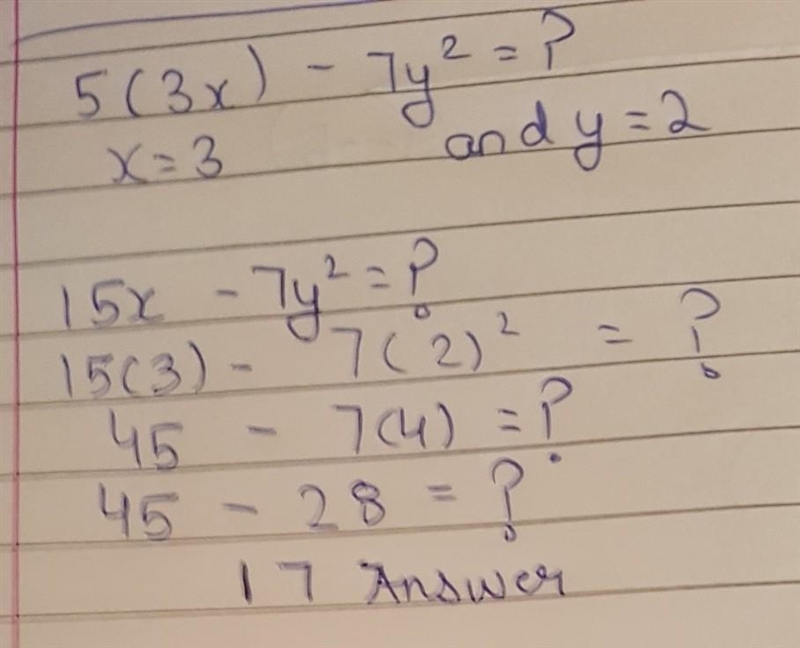 5(3x) - 7y² = ?
x=3 and y=2
15x - 7y² = ?
15(3) - 7(2)² = ?
45 - 7(4) = ?
45 - 28 = ?
17 Answer